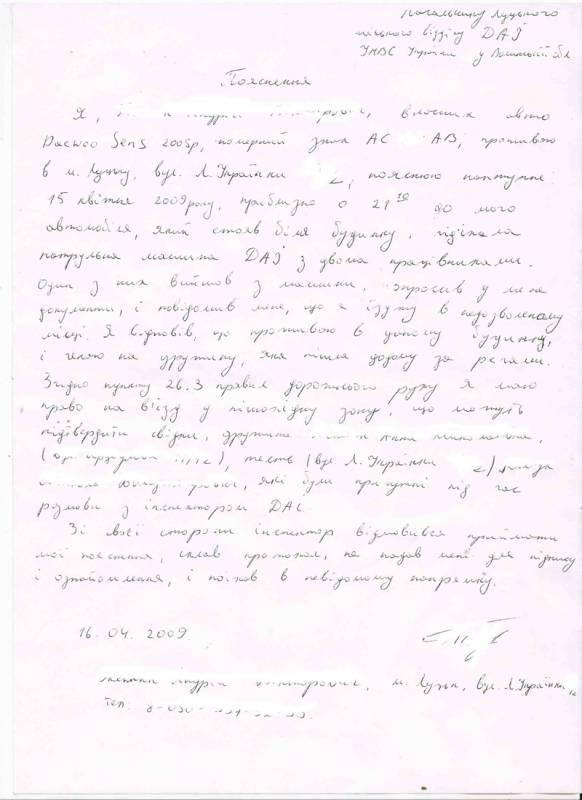 Начальнику Луцького
міського відділу ДАЇ
УМВС України у Волинській обл.
Пояснення
Я, власник авто
Daewoo Sens 2005р, номерний знак АС АВ, проживаю
в м. Луцьку, вул. Л. Українки пояснюю наступне:
15 квітня 2009 року, приблизно о 21 10 до мого
автомобіля, який стояв біля будинку, під'їхала
патрульна машина ДАЇ з двома працівниками.
Один з них вийшов з машини, запросив у мене
документи, і повідомив мене, що я їзджу в недозволеному
місці. Я відповів, що проживаю в даному будинку,
і чекаю на дружину, яка пішла додому за речами.
Згідно пункту 26.3 правил дорожнього руху я маю
право на в'їзд у пішохідну зону, що можуть
підтвердити свідки, дружина
тесть (вул. Л. Українки
які були присутні під час
розмови з інспектором ДАІ.
Зі своєї сторони інспектор відмовився приймати
мої пояснення, склав протокол, не надав мені для підпису
і ознайомлення, і поїхав в невідомому напрямку.
16.04.2009
м. Луцьк, вул. Л. Українки
тел: